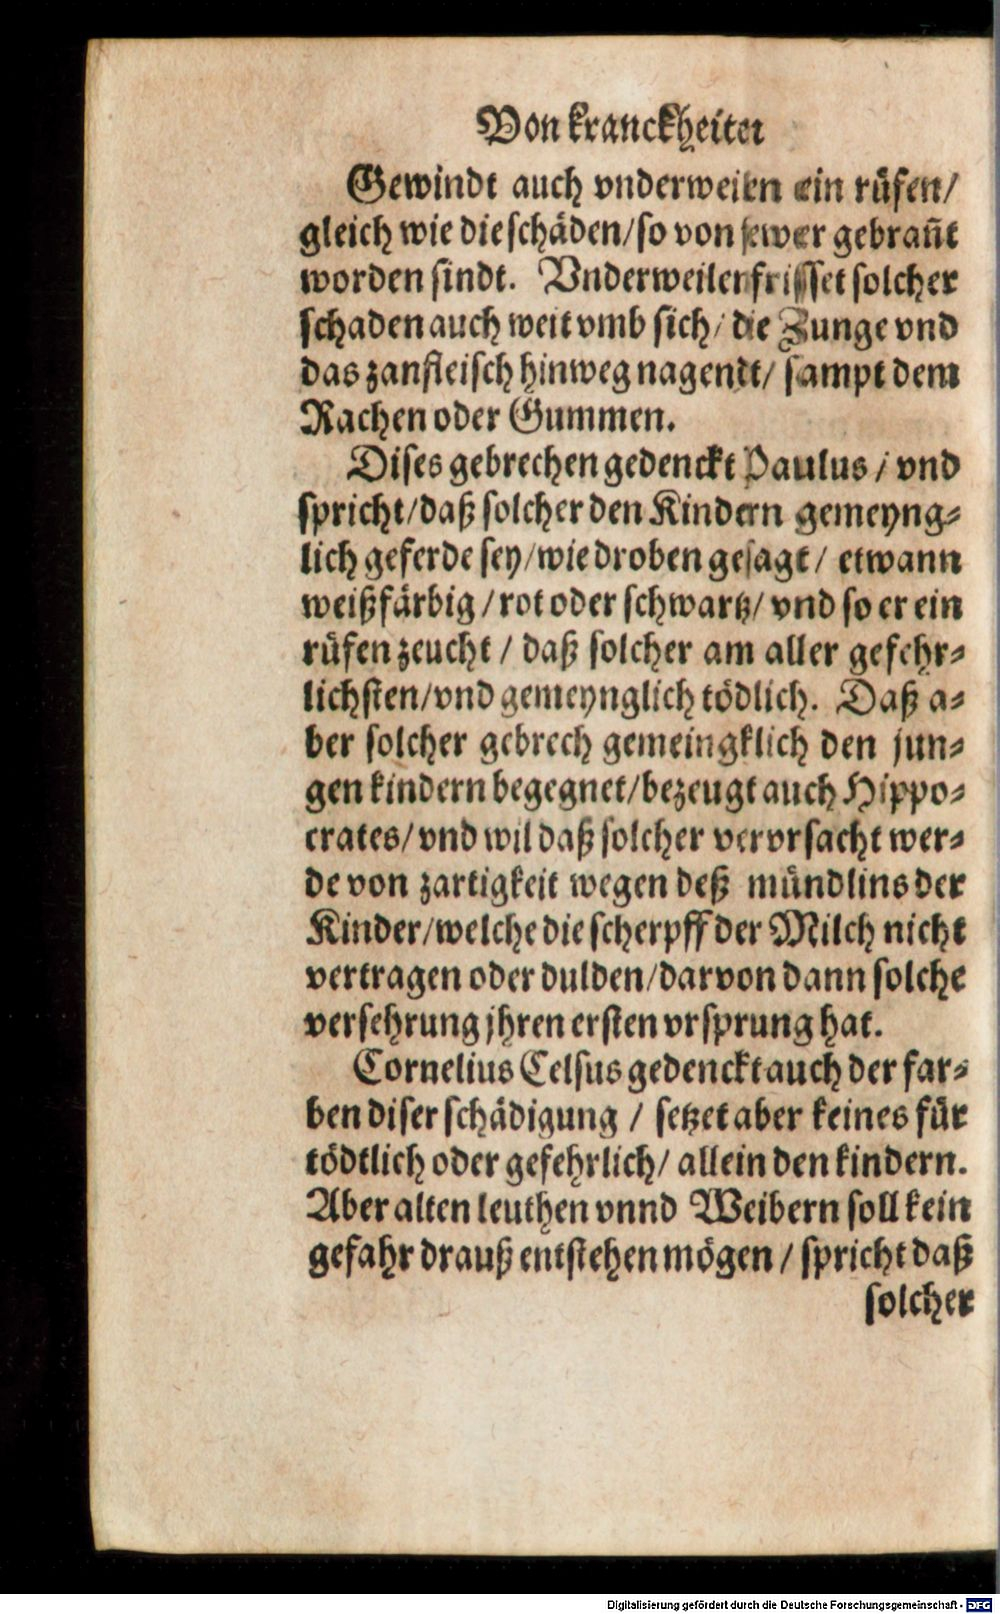 Von kranckheiten
Gewindt auch vnderweilen ein rüfen/
gleich wie die schäden/so von fewer gebrañt
worden sindt. Vnderweilen frisset solcher
schaden auch weit vmb sich/ die Zunge vnd
das zanfleisch hinweg nagendt/ sampt dem
Rachen oder Gummen.
Dises gebrechen gedenckt Paulus / vnd
spricht/daß solcher den Kindern gemeyng-
lich geferde sey/wie droben gesagt/ etwann
weißfärbig/rot oder schwartz/ vnd so er ein
rüfen zeucht / daß solcher am aller gefehr-
lichsten/vnd gemeynglich tödlich. Daß a-
ber solcher gebrech gemeingklich den jun-
gen kindern begegnet/bezeugt auch Hippo-
crates/vnd wil daß solcher verursacht wer-
de von zartigkeit wegen deß mündlins der
Kinder/welche die scherpff der Milch nicht
vertragen oder dulden/darvon dann solche
versehrung jhren ersten vrsprung hat.
Cornelius Celsus gedenckt auch der far-
ben diser schädigung / setzet aber keines für
tödtlich oder gefehrlich/ allein den kindern.
Aber alten leuthen vnnd Weibern soll kein
gefahr drauß entstehen mögen / spricht daß
solcher
Digitalisierung gefördert durch die Deutsche Forschungsgemeinschaft - DFG